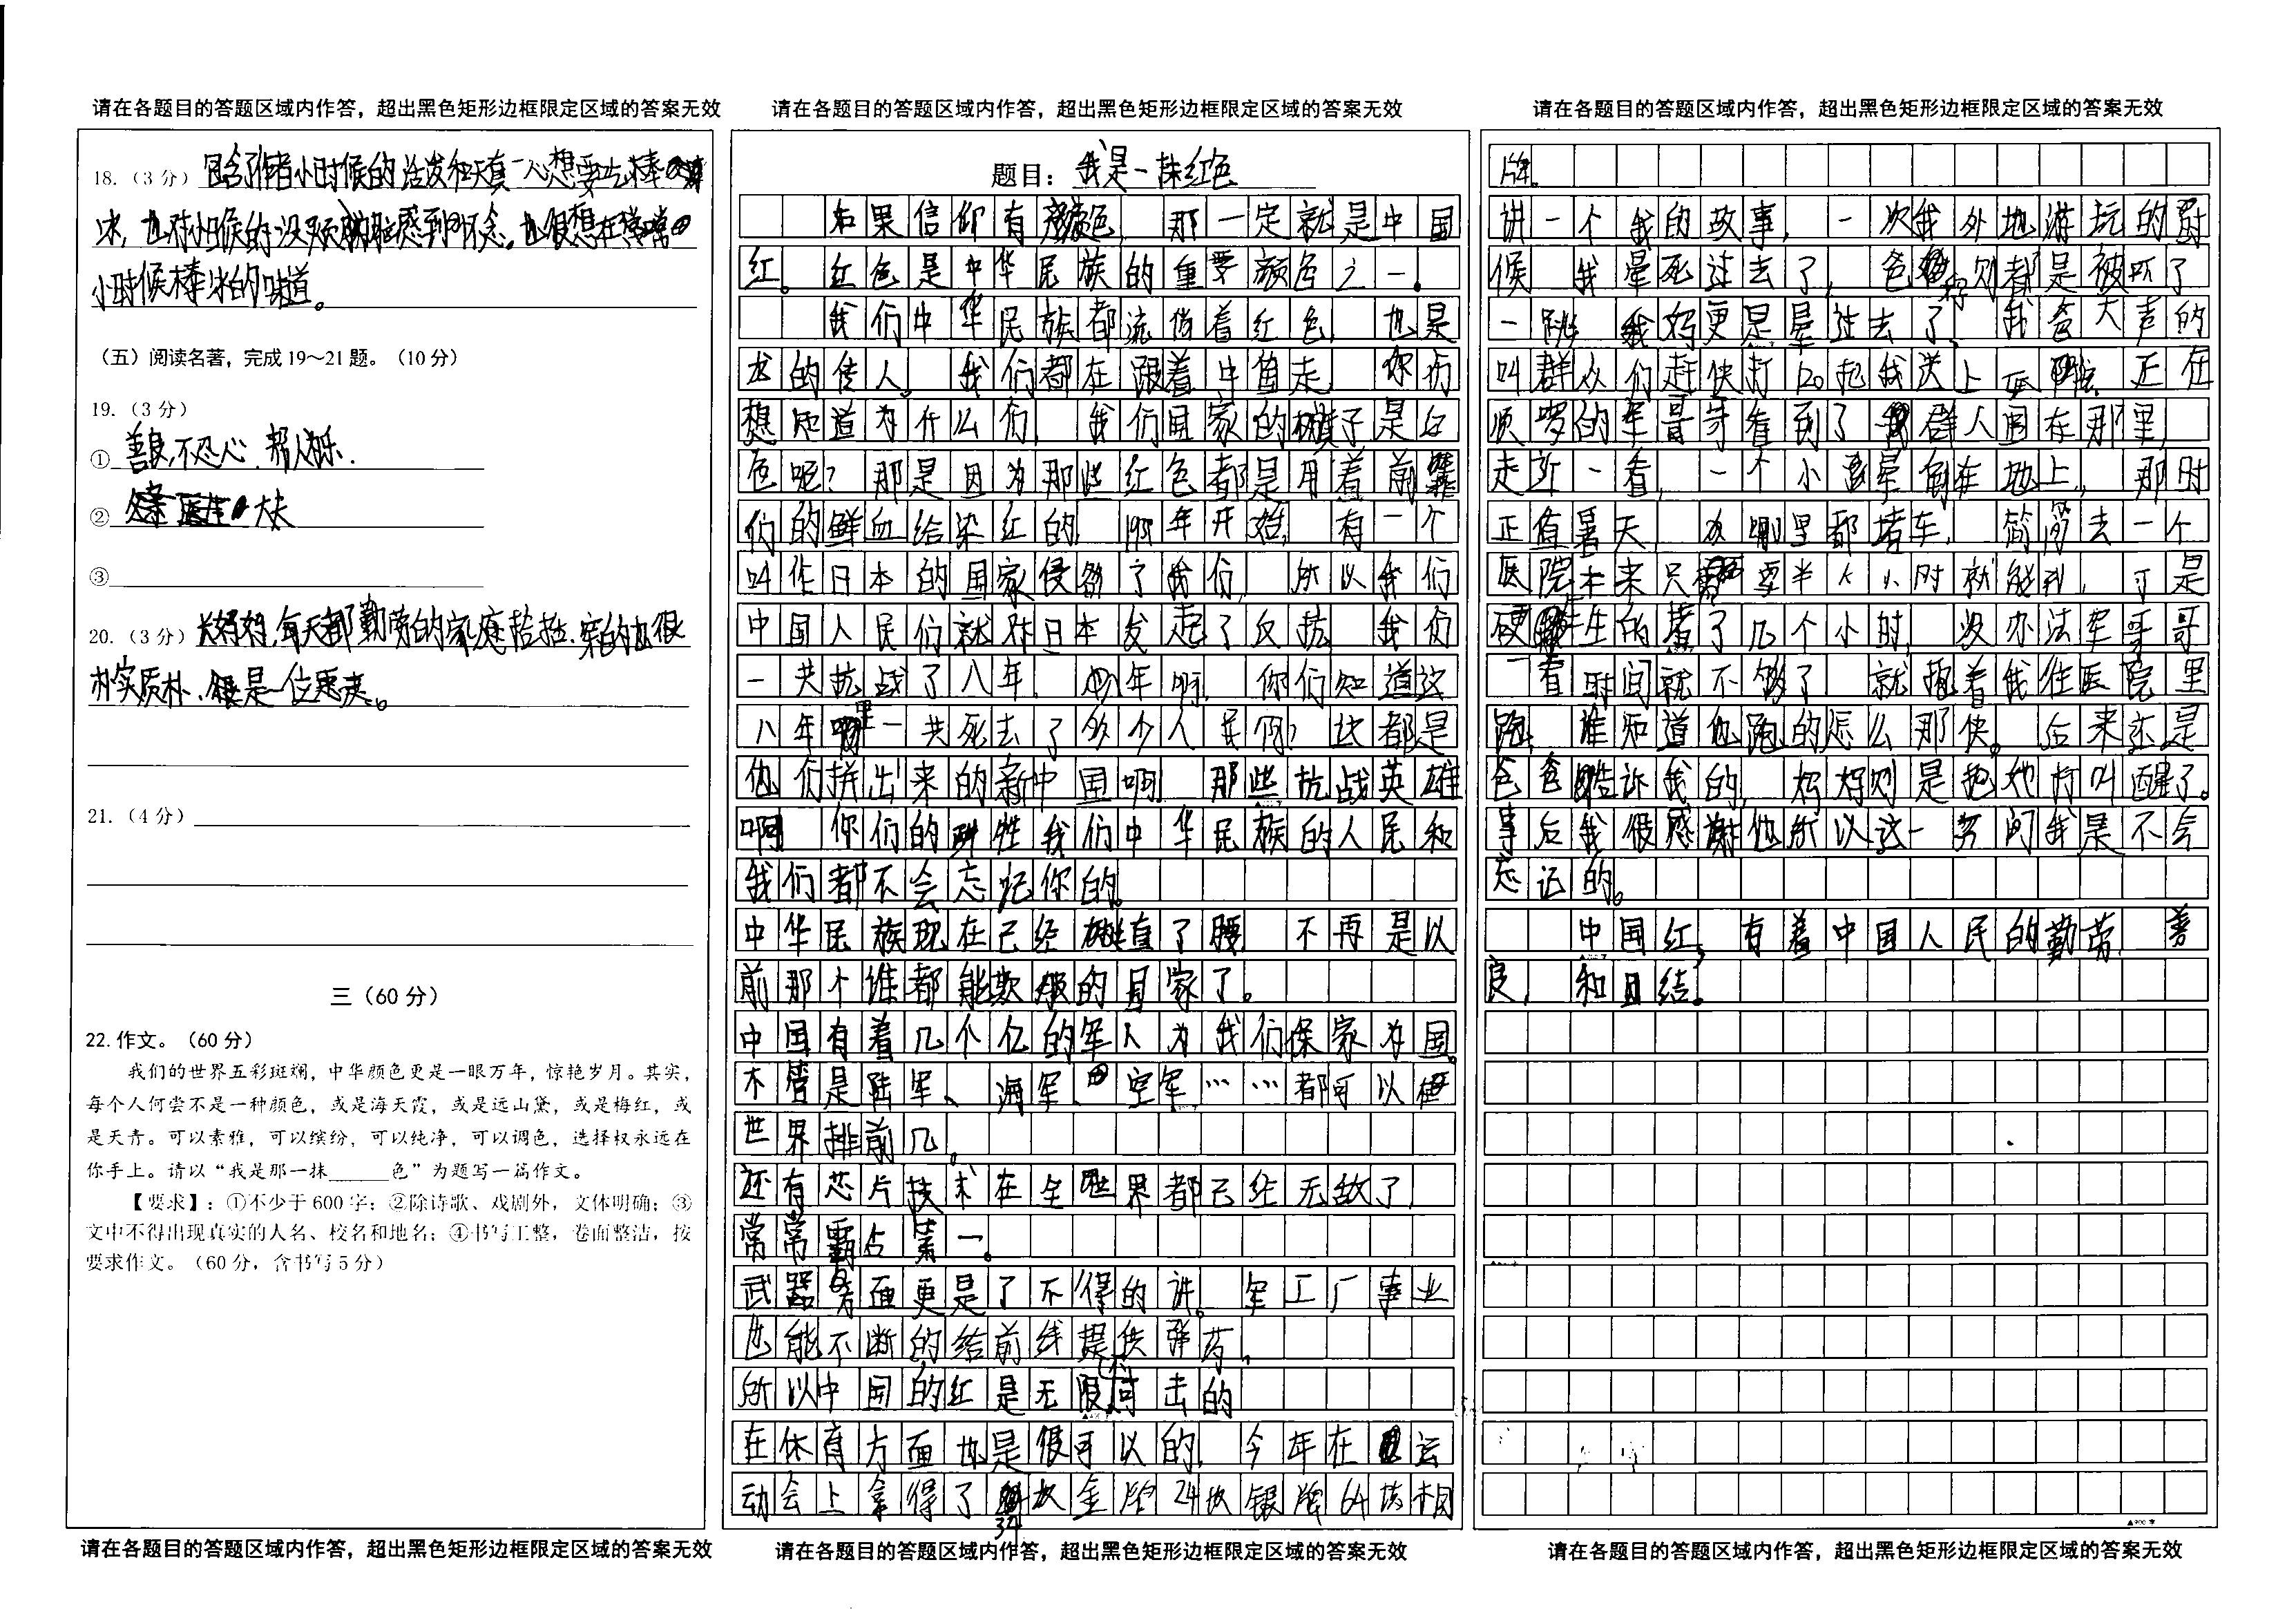 请在各题目的答题区域内作答，超出黑色矩形边框限定区域的答案无效
18.（3分）包含了作者小时候的活发和天真一心想要吃棒
冰，也对小时候的没烦恼感到怀念。也很想在常常
小时候棒冰的味道。
（五）阅读名著，完成19～21题。（10分）
19.（3分）
① 善良,不忍心.帮人快乐.
② 大夫
③
20.（3分）长妈妈,每天都勤劳的家庭,穿的也很
朴实质朴.但是一位
21.（4分）
三（60分）
22.作文。（60分）
我们的世界五彩斑斓，中华颜色更是一眼万年，惊艳岁月。其实，
每个人何尝不是一种颜色，或是海天霞，或是远山黛，或是梅红，或
是天青。可以素雅，可以缤纷，可以纯净，可以调色，选择权永远在
你手上。请以“我是那一抹______色”为题写一篇作文。
【要求】：①不少于600字；②除诗歌、戏剧外，文体明确；③
文中不得出现真实的人名、校名和地名；④书写工整，卷面整洁，按
要求作文。（60分，含书写5分）
请在各题目的答题区域内作答，超出黑色矩形边框限定区域的答案无效
请在各题目的答题区域内作答，超出黑色矩形边框限定区域的答案无效
题目：我是一抹红色
如果信仰有颜色，那一定就是中国
红。红色是中华民族的重要颜色之一.
我们中华民族都流倘着红色，也是
龙的传人。我们都在跟着中国走，你们
想知道为什么们，我们国家的旗子是红
色呢？那是因为那些红色都是用着前辈
们的鲜血给染红的，年开始，有一个
叫作日本的国家侵略了我们，所以我们
中国人民们就对日本发起了反抗，我们
一共抗战了八年，八年啊，你们知道这
八年里一共死去了多少人民啊？这都是
他们拼出来的新中国啊，那些抗战英雄
啊，你们的牺牲我们中华民族的人民和
我们都不会忘记你的。
中华民族现在已经挺直了腰，不再是以
前那个谁都能欺服的国家了。
中国有着几个亿的军人为我们保家为国。
不管是陆军、海军、空军……都可以在
世界排前几。
还有芯片技术在全世界都已经无敌了，
常常霸占第一。
武器方面更是了不得的讲。军工厂事业
也能不断的给前线提供弹药，
所以中国的红是无限可击的
在体育方面也是很可以的，今年在运
动会上拿得了34枚金牌24枚银牌64枚铜
请在各题目的答题区域内作答，超出黑色矩形边框限定区域的答案无效
请在各题目的答题区域内作答，超出黑色矩形边框限定区域的答案无效
牌。
讲一个我的故事，一次我外地游玩的时
候，我晕死过去了，爸妈则都是被吓了
一跳，我妈更是晕过去了，我爸大声的
叫群众们赶快打120把我送上医院，正在
巡罗的军哥哥看到了群人围在那里，
走近一看，一个小孩晕倒在地上，那时
正值暑天，哪里都堵车，去一个
医院本来只要半个小时就能到，可是
硬生生的堵了几个小时，没办法军哥哥
一看时间就不够了，就抱着我往医院里
跑，谁知道他跑的怎么那快。后来还是
爸爸告诉我的，妈妈则是把她打叫醒了。
事后我很感谢他所以这一方间我是不会
忘记的。
中国红，有着中国人民的勤劳，善
良，和团结。
▲900字
请在各题目的答题区域内作答，超出黑色矩形边框限定区域的答案无效